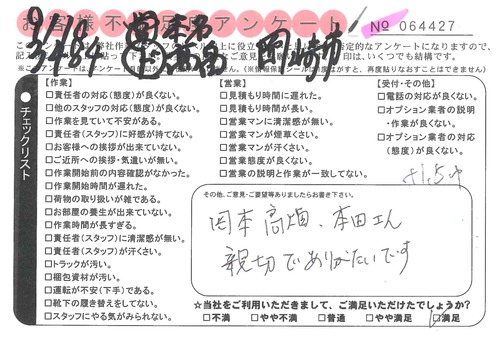 お客様不満足度アンケート
№ 064427
岡崎市
【作業】
□責任者の対応(態度)が良くない。
□他のスタッフの対応(態度)が良くない。
□作業を見ていて不安がある。
□責任者(スタッフ)に好感が持てない。
□お客様への挨拶が出来ていない。
□ご近所への挨拶・気遣いが無い。
□作業開始前の内容確認がなかった。
□作業開始時間が遅れた。
□荷物の取り扱いが雑である。
□お部屋の養生が出来ていない。
□作業時間が長すぎる。
□責任者(スタッフ)に清潔感が無い。
□責任者(スタッフ)が汗くさい。
□トラックが汚い。
□梱包資材が汚い。
□運転が不安(下手)である。
□靴下の履き替えをしてない。
□スタッフにやる気がみられない。
【営業】
□見積もり時間に遅れた。
□見積もり時間が長い。
□営業マンに清潔感が無い。
□営業マンが煙草くさい。
□営業マンが汗くさい。
□営業態度が良くない。
□営業の説明と作業が一致してない。
【受付・その他】
□電話の対応が良くない。
□オプション業者の説明
・作業が良くない。
□オプション業者の対応
(態度)が良くない。
●チェックリスト
その他、ご意見・ご要望等ありましたらお書き下さい。
岡本高畑、本田さん
親切でありがたいです
☆当社をご利用いただきまして、ご満足いただけたでしょうか?
□不満 □やや不満 □普通 □やや満足 □満足